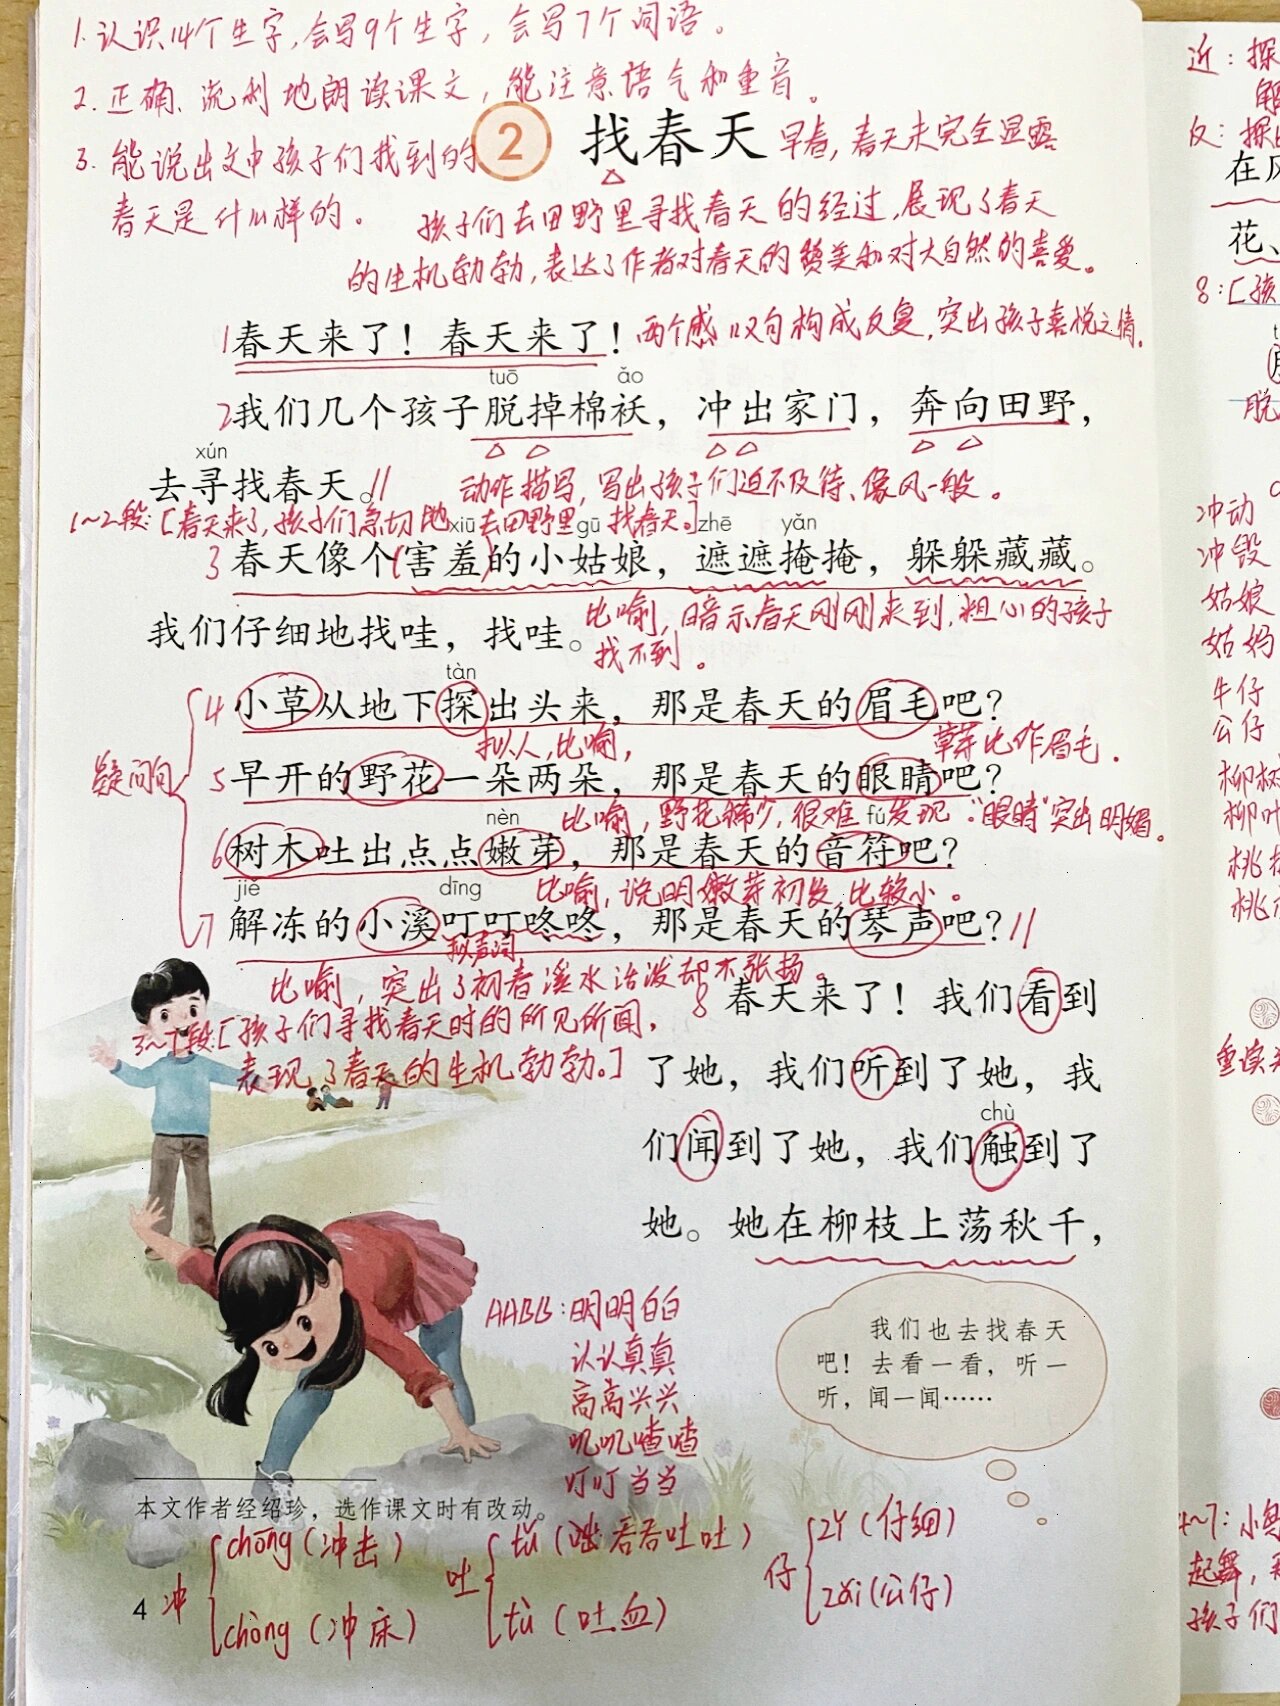 1.认识14个生字,会写9个生字,会写7个词语。
2.正确、流利地朗读课文,能注意语气和重音。
3.能说出文中孩子们找到的
春天是什么样的。
2 找春天
早春,春天未完全显露
孩子们去田野里寻找春天的经过,展现了春天
的生机勃勃,表达了作者对春天的赞美和对大自然的喜爱。
1春天来了!春天来了!
两个感叹句构成反复,突出孩子喜悦之情。
tuō ǎo
2我们几个孩子脱掉棉袄,冲出家门,奔向田野,
xún
去寻找春天。//
动作描写,写出孩子们迫不及待、像风一般。
1~2段:[春天来了,孩子们急切地去田野里找春天。]
xiū gū zhē yǎn
3春天像个(害羞)的小姑娘,遮遮掩掩,躲躲藏藏。
我们仔细地找哇,找哇。
比喻,暗示春天刚刚来到,粗心的孩子
找不到。
tàn
4小草从地下探出头来,那是春天的眉毛吧?
拟人,比喻,
草芽比作眉毛.
疑问句
5早开的野花一朵两朵,那是春天的眼睛吧?
比喻,野花稀少,很难发现."眼睛"突出明媚。
nèn fú
6树木吐出点点嫩芽,那是春天的音符吧?
比喻,说明嫩芽初发,比较小。
jiě dīng
7解冻的小溪叮叮咚咚,那是春天的琴声吧?//
拟声词
比喻,突出了初春溪水活泼却不张扬。
3~7段:[孩子们寻找春天时的所见所闻,
表现了春天的生机勃勃。]
8春天来了!我们看到
了她,我们听到了她,我
chù
们闻到了她,我们触到了
她。她在柳枝上荡秋千,
AABB:明明白白
认认真真
高高兴兴
叽叽喳喳
叮叮当当
我们也去找春天
吧!去看一看,听一
听,闻一闻……
本文作者经绍珍,选作课文时有改动。
冲 chōng(冲击)
chòng(冲床)
吐 tǔ(吞吞吐吐)
tù(吐血)
仔 zǐ(仔细)
zǎi(公仔)
4
近:探
解
反:探
在风
花、
8:[孩
脱
冲动
冲毁
姑娘
姑妈
牛仔
公仔
柳树
柳叶
桃
桃
重读
4~7:小
起舞,
孩子们